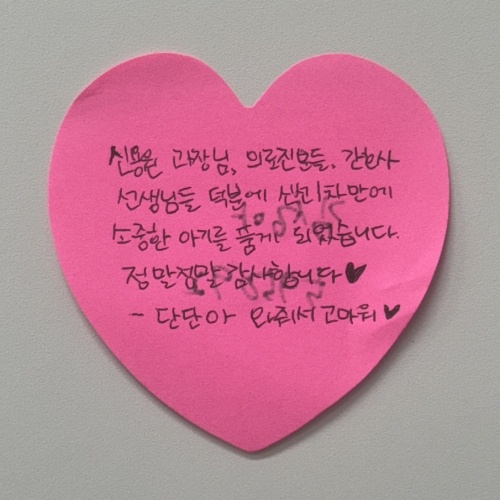 신용운 과장님, 의료진분들, 간호사
선생님들 덕분에 삼신차만에
소중한 아기를 품게 되었습니다.
정말정말 감사합니다♥
- 단단아 와줘서 고마워♥